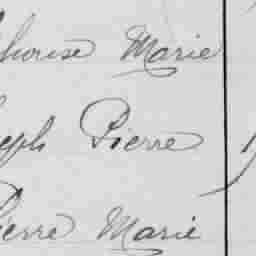 phonse Marie
seph Pierre
Pierre Marie